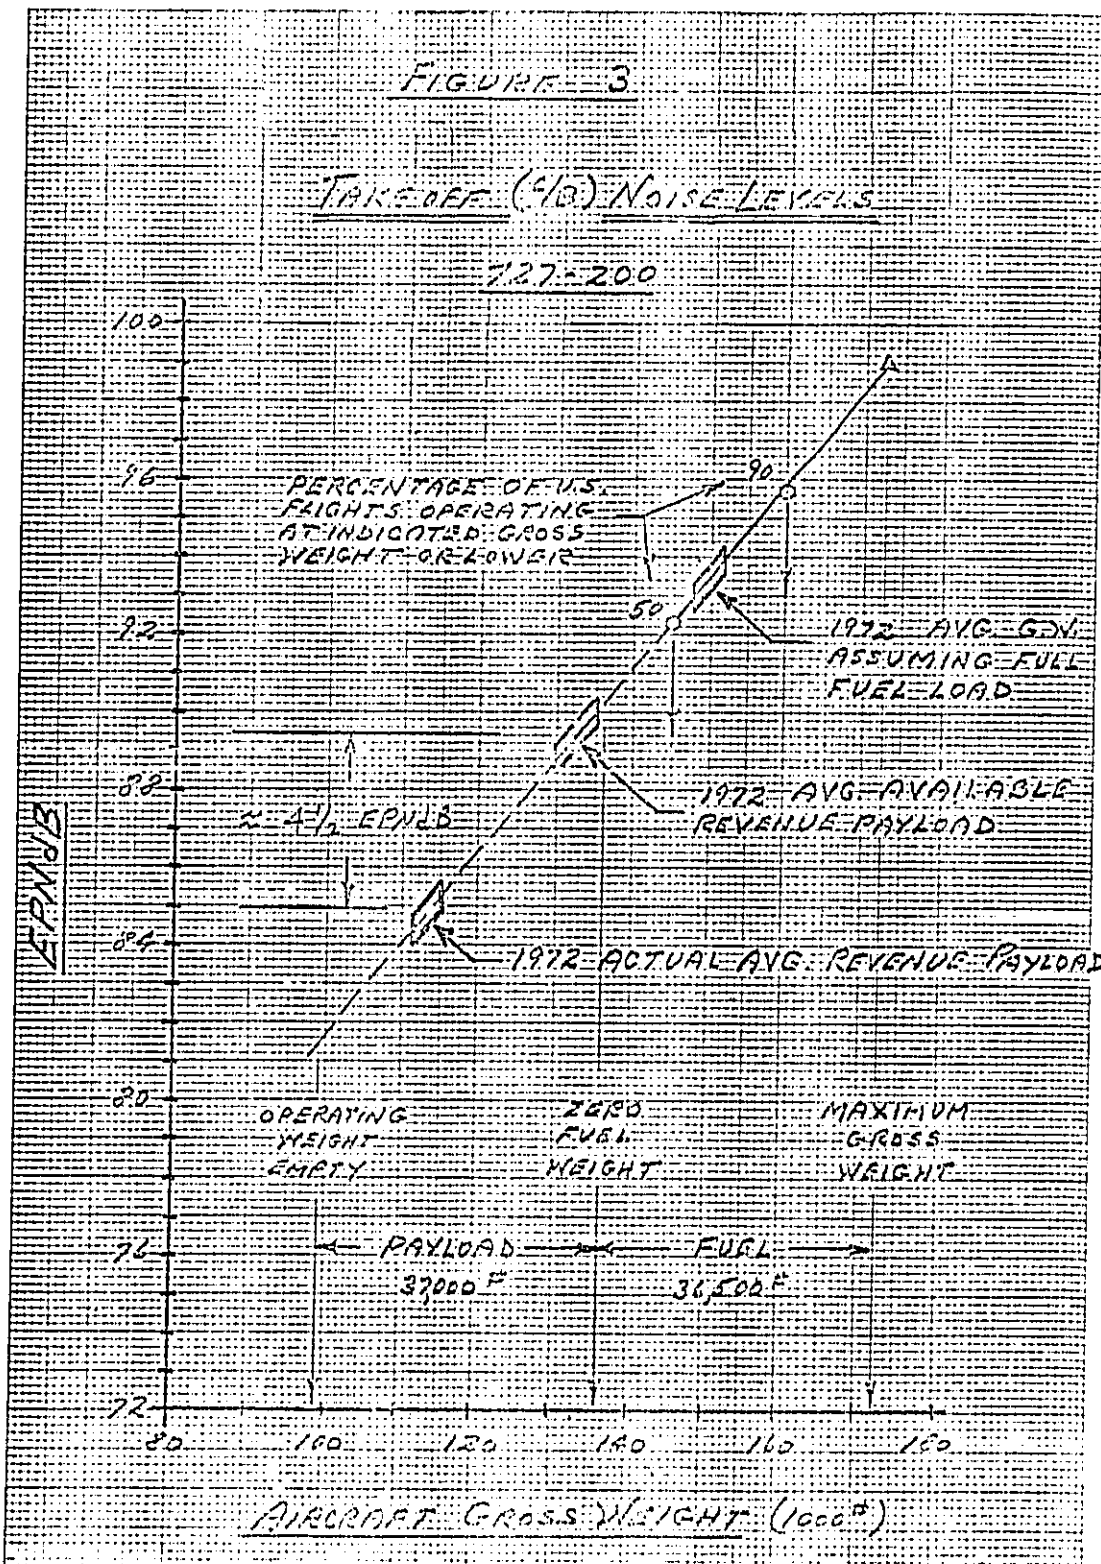 FIGURE 3
TAKEOFF (C/B) NOISE LEVELS
727-200
100
96
92
88
84
80
76
72
EPNdB
PERCENTAGE OF U.S.
FLIGHTS OPERATING
AT INDICATED GROSS
WEIGHT OR LOWER
90
50
1972 AVG. G.W.
ASSUMING FULL
FUEL LOAD
1972 AVG. AVAILABLE
REVENUE PAYLOAD
≈ 4 1/2 EPNdB
1972 ACTUAL AVG. REVENUE PAYLOAD
OPERATING
WEIGHT
EMPTY
ZERO
FUEL
WEIGHT
MAXIMUM
GROSS
WEIGHT
PAYLOAD
37,000 #
FUEL
36,500 #
80 100 120 140 160 180
AIRCRAFT GROSS WEIGHT (1000#)